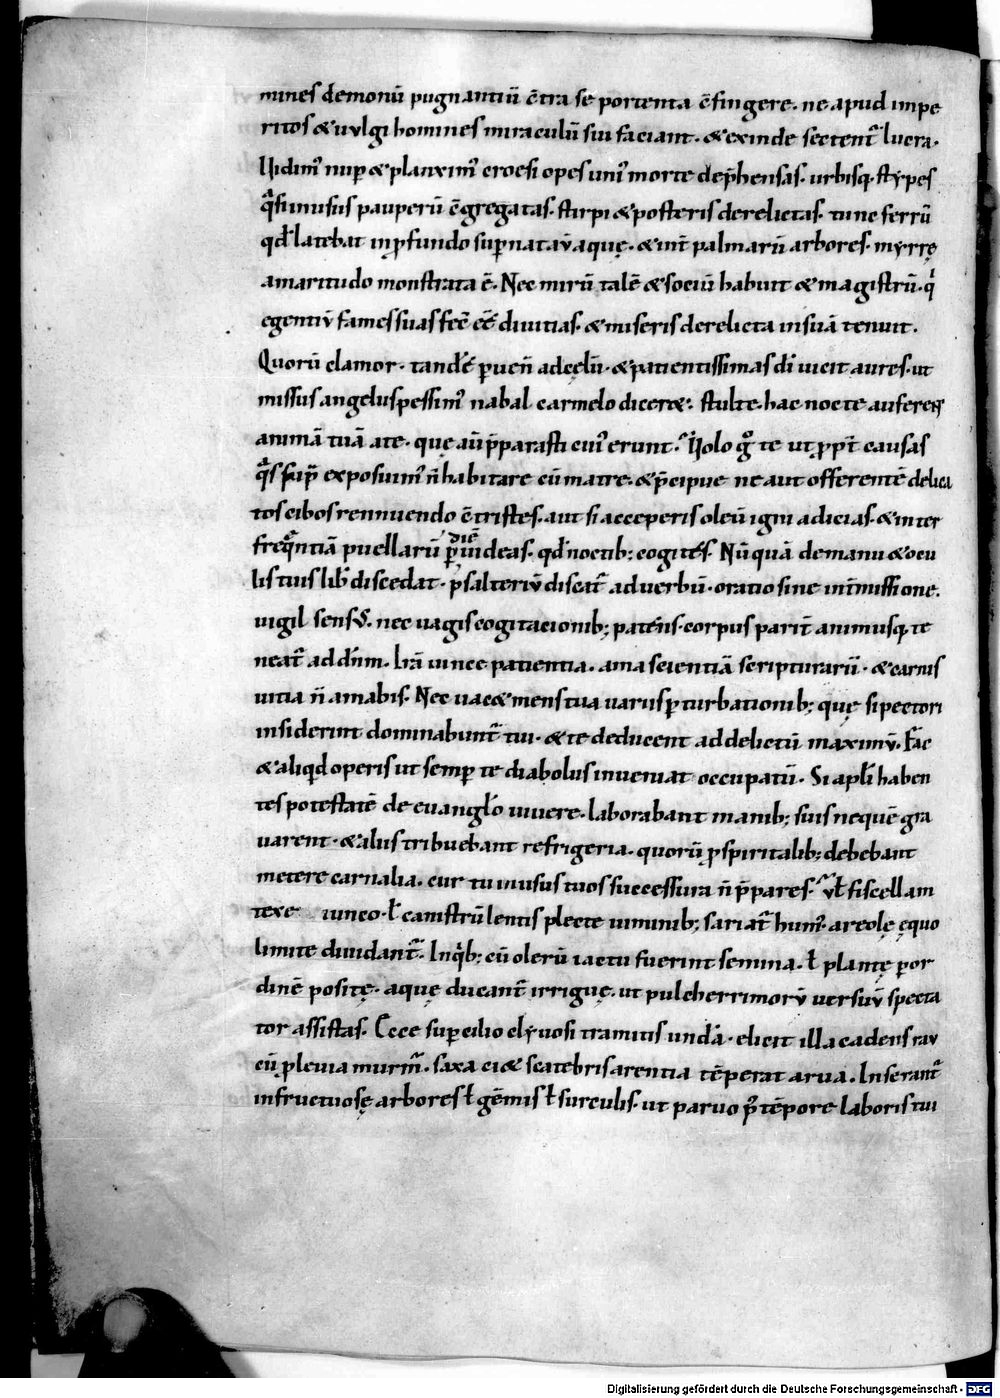 mines demonū pugnantiū c̄tra se portenta c̄fingere. ne apud impe
ritos & uulgi homines miraculū sui faciant. & exinde sectent̄ lucra.
Uidim᷒ nup̄ & planxim᷒ croesi opes uni᷒ morte dep̄hensas. urbisq; stypes
q̄si in usus pauperū c̄gregatas. stirpi & posteris derelictas. tunc ferrū
qđ latebat in p̄fundo sup̄natauit aquę. & int̄ palmarū arbores. myrrę
amaritudo monstrata ē. Nec mirū talē & sociū habuit & magistrū. q̇
egentiū fames suas fec̄ eē diuitias. & miseris derelicta in suā tenuit.
Quorū clamor. tandē puen̄ ad cęlū. & patientissimas dī uicit aures. ut
missus angelus pessim᷒ nabal carmelo diceret. stulte. hac nocte auferent̄
animā tuā a te. quę aū p̄parasti cui᷒ erunt. Uolo g̊ te ut p̄pt̄ causas
q̄s sup̄ exposuim᷒ n̄ habitare cū matre. & p̄cipue ne aut offerentē delica
tos cibos rennuendo c̄tristes. aut si acceperis oleū igni adicias. & inter
freq̄ntiā puellarū p̱ diē uideas. qđ noctib; cogites. Nūquā de manu & ocu
lis tuis lib̄ discedat. psalteriū discat̄ ad uerbū. oratio sine int̄missione.
uigil sensus. nec uagis cogitacionib; patens. corpus parit̄ animusq; te
neat̄ ad dn̄m. Irā uince patientia. ama scientiā scripturarū. & carnis
uitia n̄ amabis. Nec uacet mens tua uariis p̱turbationib; quę si pectori
insiderint dominabunt̄ tui. & te deducent ad delictū maximū. Fac
& aliqd operis ut semp̱ te diabolus inueniat occupatū. Si apłi haben
tes potestatē de euangło uiuere. laborabant manib; suis ne quē gra
uarent. & aliis tribuebant refrigeria. quorū p̱ spiritalib; debebant
metere carnalia. cur tu in usus tuos successura n̄ p̄pares. uł fiscellam
texe iunco. ł canistrū lentis plecte uiminib; sariat̄ hum᷒. areolę ęquo
limite diuidant̄. In q̇b; cū olerū iactu fuerint semina. ł plantę p̱ or
dinē positę. aquę ducant̄ irriguę. ut pulcherrimorū uersuū specta
tor assistas. Ecce sup̱cilio clyuosi tramitis undā. elicit illa cadens rau
cū p̱ leuia murm̄. saxa ciet scatebris arentia tēperat arua. Inserant̄
infructuosę arbores ł gēmis ł surculis. ut paruo p᷒ tēpore laboris tui